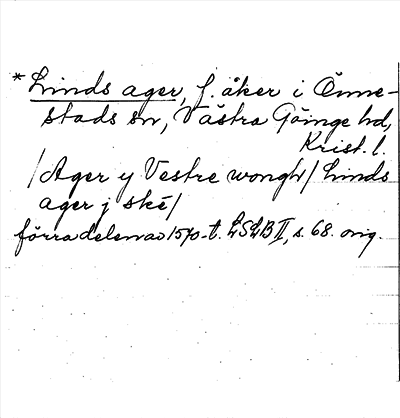 * Linds ager, f. åker i Önne-
stads sn, Västra Göinge hd,
Krist. l.
/Ager y Vestre wongh/ Linds
ager j ske/
förra delen av 1570-t. LSLB II, s. 68. orig.